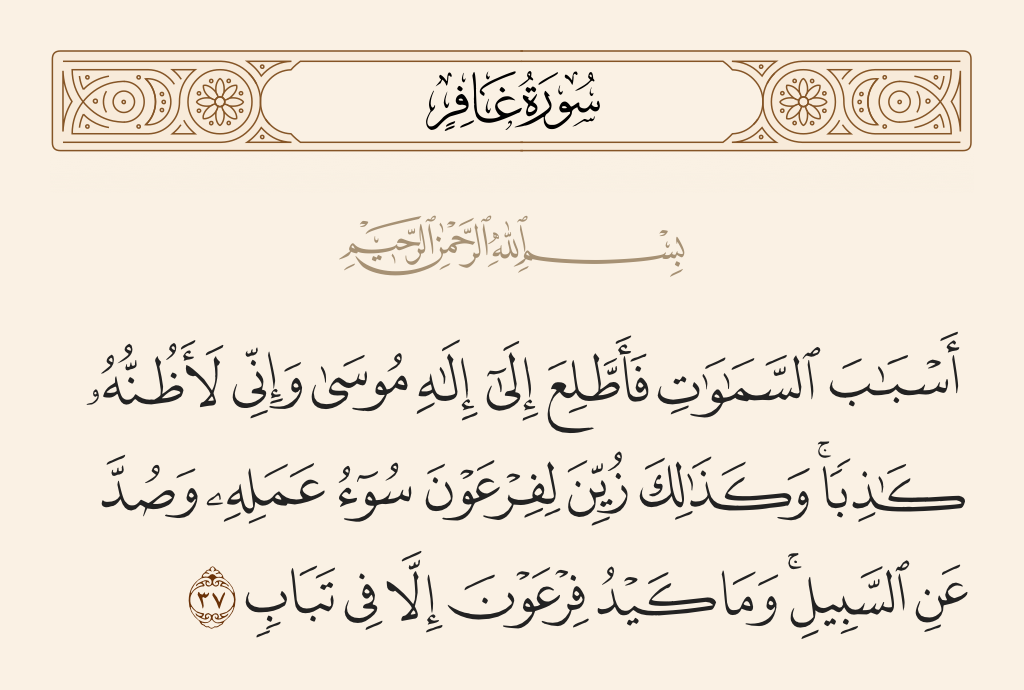 سُورَةُ غَافِرٍ
بِسْمِ ٱللَّهِ ٱلرَّحْمَٰنِ ٱلرَّحِيمِ
أَسْبَٰبَ ٱلسَّمَٰوَٰتِ فَأَطَّلِعَ إِلَىٰٓ إِلَٰهِ مُوسَىٰ وَإِنِّى لَأَظُنُّهُۥ
كَٰذِبًا ۚ وَكَذَٰلِكَ زُيِّنَ لِفِرْعَوْنَ سُوٓءُ عَمَلِهِۦ وَصُدَّ
عَنِ ٱلسَّبِيلِ ۚ وَمَا كَيْدُ فِرْعَوْنَ إِلَّا فِى تَبَابٍ ٣٧